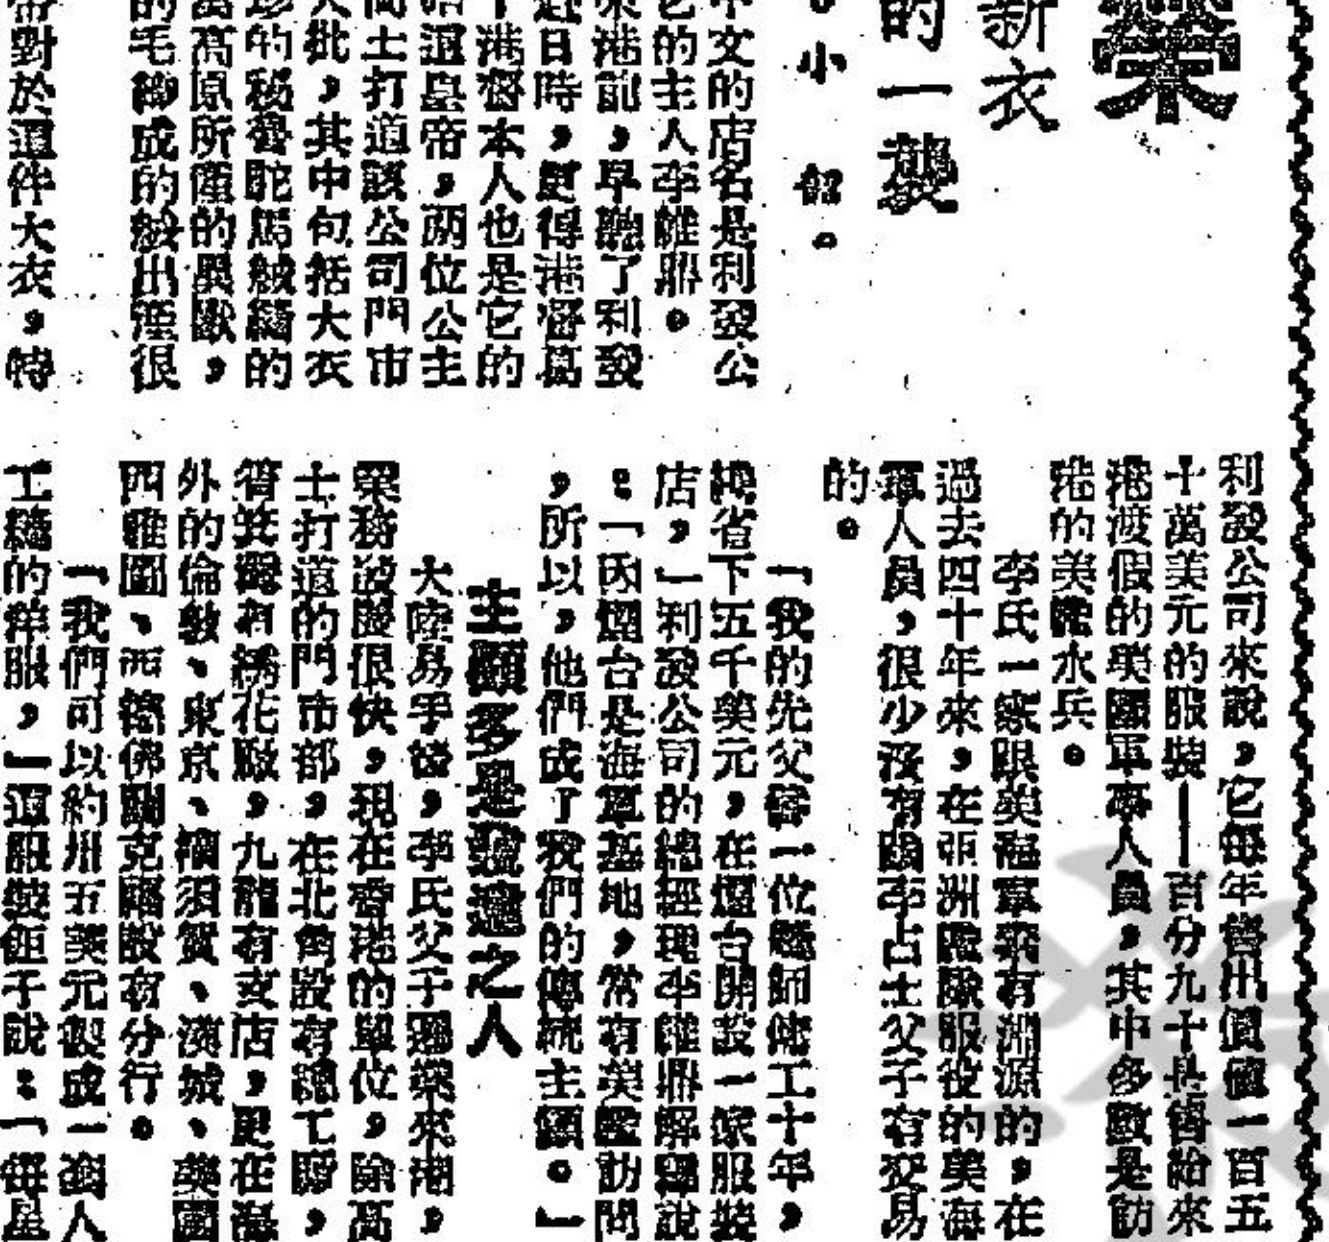 榮
新衣
的一襲
。小
。
中文的店名是利發公
它的主人李維鼎。
來港前，早聽了利發
赴日時，更得港督葛
港督本人也是它的
還皇帝，兩位公主
士打道該公司門市
大批，其中包括大衣
的秘魯駝馬絨織的
高原所產的異獸，
的毛織成的絨出產很
帝對於這件大衣，特
利發公司來說，它每年售出價值一百五
十萬美元的服裝——百分九十是售給來
港渡假的美國軍事人員，其中多數是訪
港的美艦水兵。
李氏一家跟美海軍是有淵源的，在
過去四十年來，在亞洲艦隊服役的美海
軍人員，很少沒有跟李占士父子有交易
的。
「我的先父替一位縫師做工十年，
省下五千美元，在煙台開設一家服裝
店，」利發公司的總經理李維鼎解釋說
：「因煙台是海軍基地，常有美艦訪問
，所以，他們成了我們的傳統主顧。」
主顧多是發達之人
大陸易手後，李氏父子遷業來港，
業務發展很快，現在香港的單位，除高
士打道的門市部，在北角設有總工廠，
筲箕灣有綉花廠，九龍有支店，更在海
外的倫敦、東京、橫須賀、漢城、美國
西雅圖、西德佛蘭克福設有分行。
「我們可以約卅五美元製成一套人
工縫的洋服，」這服裝鉅子說：「每星